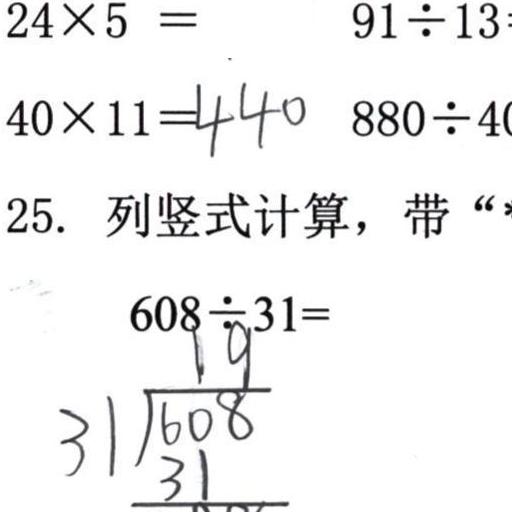 24×5 = 91÷13
40×11=440 880÷40
25. 列竖式计算，带“*
608÷31=
19
31)608
31